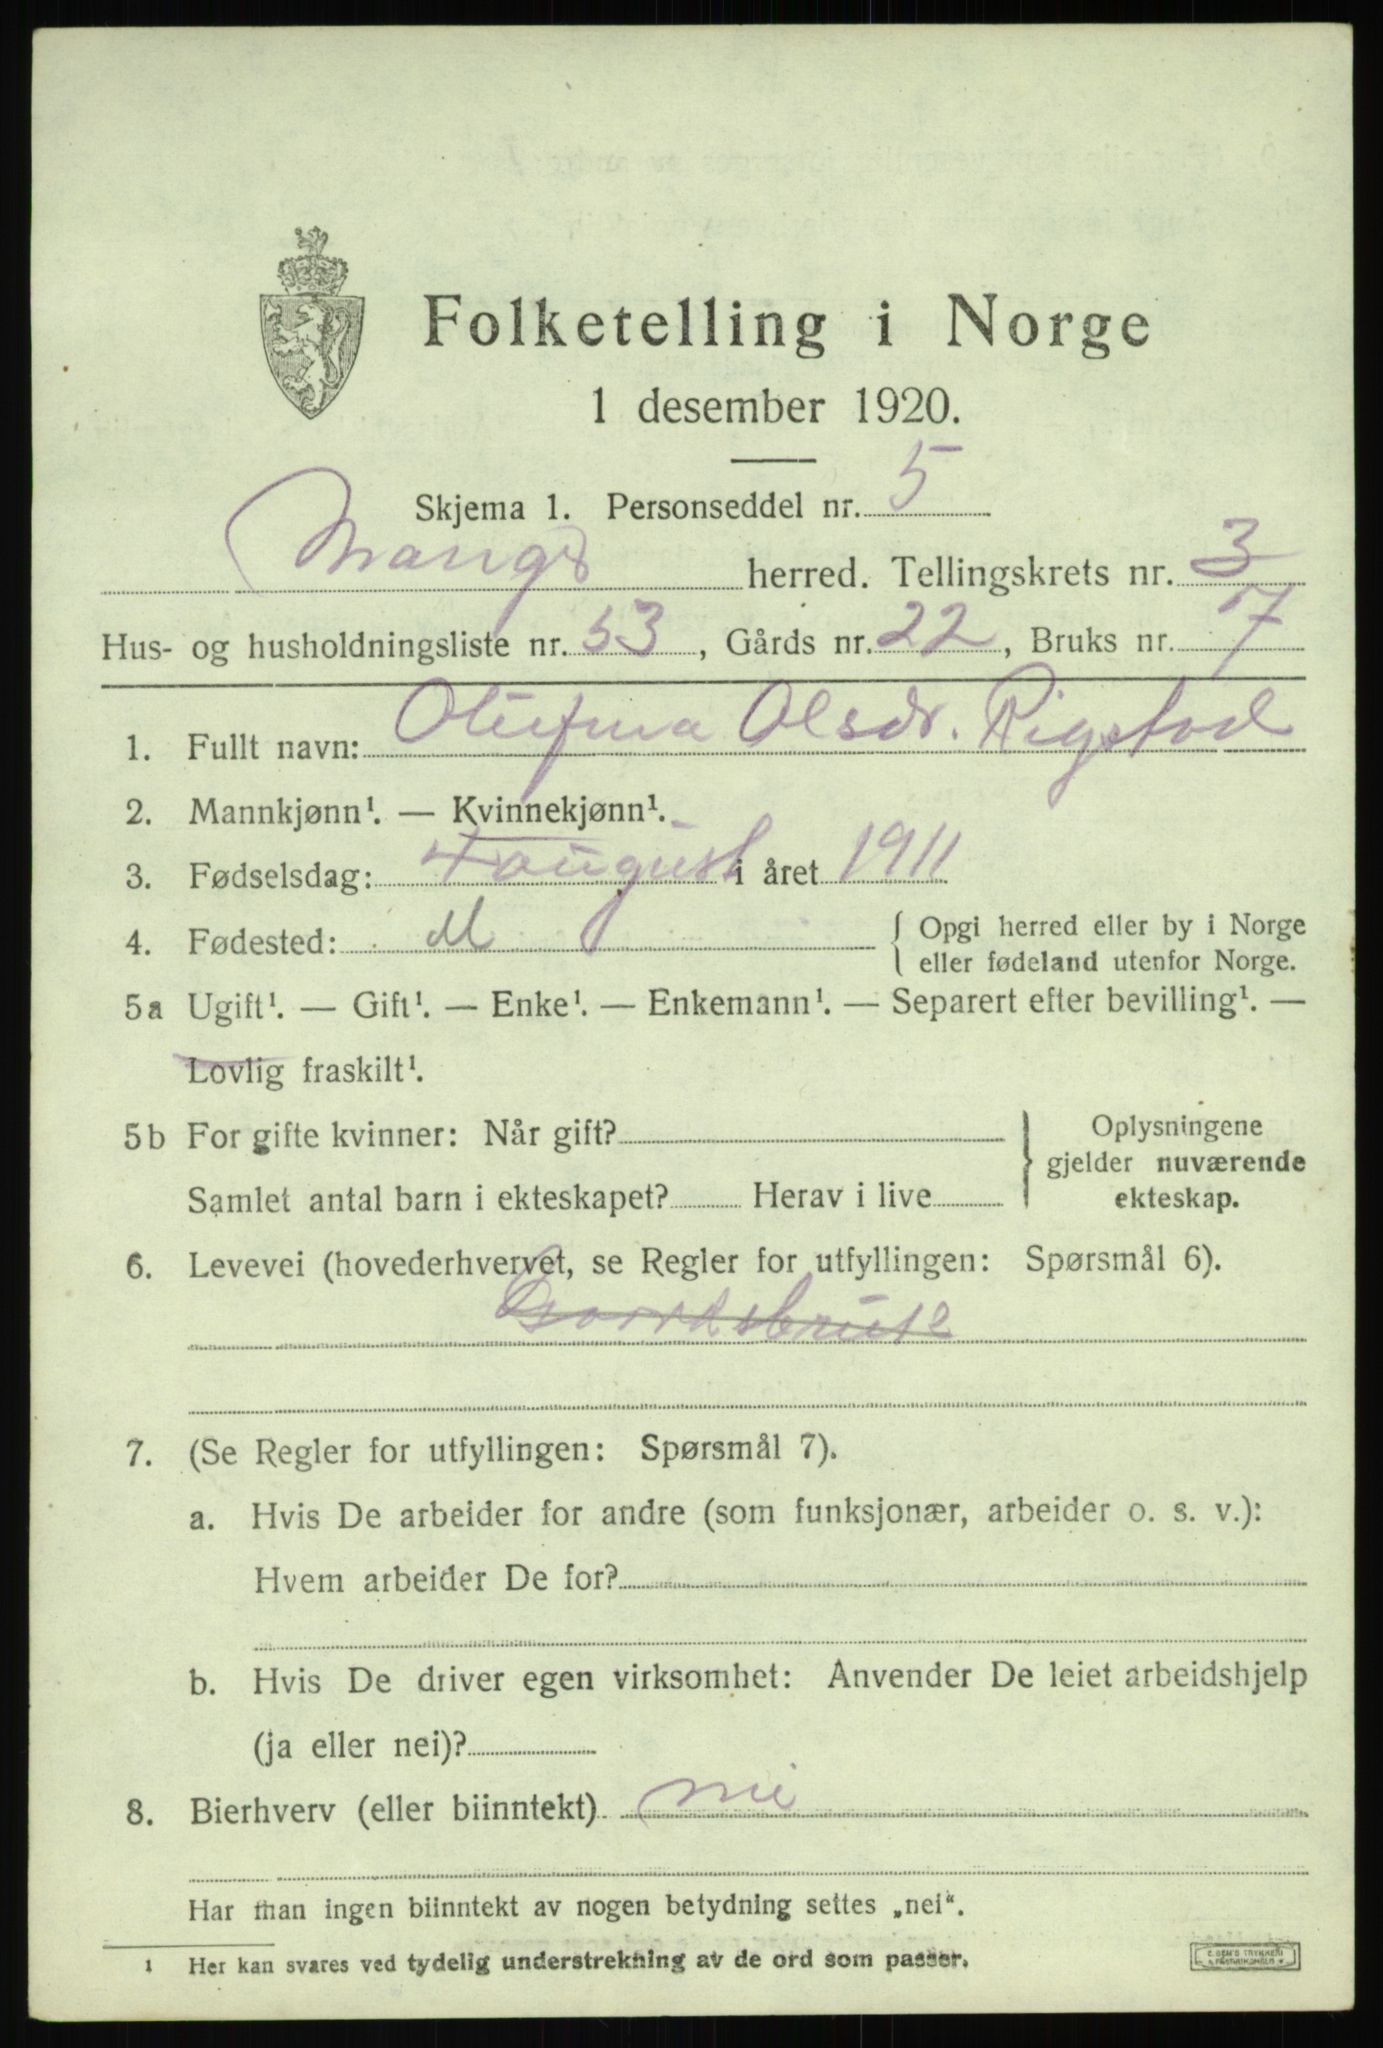 Folketelling i Norge
1 desember 1920.
Skjema 1. Personseddel nr. 5
Mangs herred. Tellingskrets nr. 3
Hus- og husholdningsliste nr. 53, Gårds nr. 22, Bruks nr. 7
1. Fullt navn: Olufina Olsdr. Rigstad
2. Mannkjønn¹. — Kvinnekjønn¹.
3. Fødselsdag: 4 august i året 1911
4. Fødested: M { Opgi herred eller by i Norge
eller fødeland utenfor Norge.
5a Ugift¹. — Gift¹. — Enke¹. — Enkemann¹. — Separert efter bevilling¹. —
Lovlig fraskilt¹.
5b For gifte kvinner: Når gift? } Oplysningene
gjelder nuværende
Samlet antal barn i ekteskapet? Herav i live ekteskap.
6. Levevei (hovederhvervet, se Regler for utfyllingen: Spørsmål 6).
Gaardsbruk
7. (Se Regler for utfyllingen: Spørsmål 7).
a. Hvis De arbeider for andre (som funksjonær, arbeider o. s. v.):
Hvem arbeider De for?
b. Hvis De driver egen virksomhet: Anvender De leiet arbeidshjelp
(ja eller nei)?
8. Bierhverv (eller biinntekt) nei
Har man ingen biinntekt av nogen betydning settes „nei“.
1 Her kan svares ved tydelig understrekning av de ord som passer.